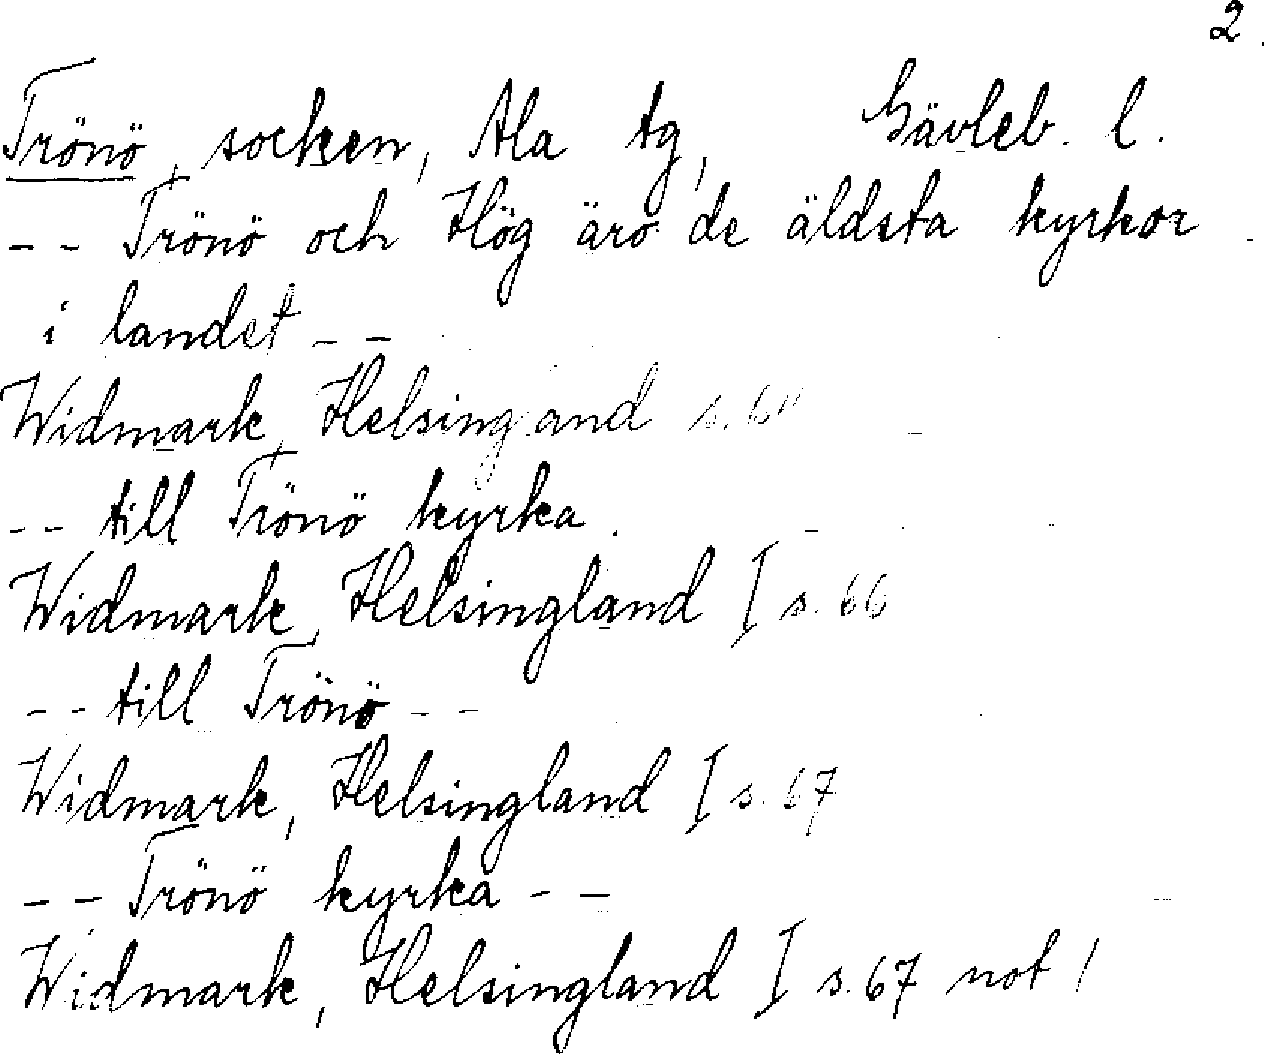 2.
Trönö, socken, Ala tg, Gävleb. l.
-- Trönö och Hög äro de äldsta kyrkor
i landet --
Widmark, Helsingland s.
-- till Trönö kyrka.
Widmark, Helsingland I s. 66
-- till Trönö --
Widmark, Helsingland I s. 67
-- Trönö kyrka --
Widmark, Helsingland I s. 67 not 1